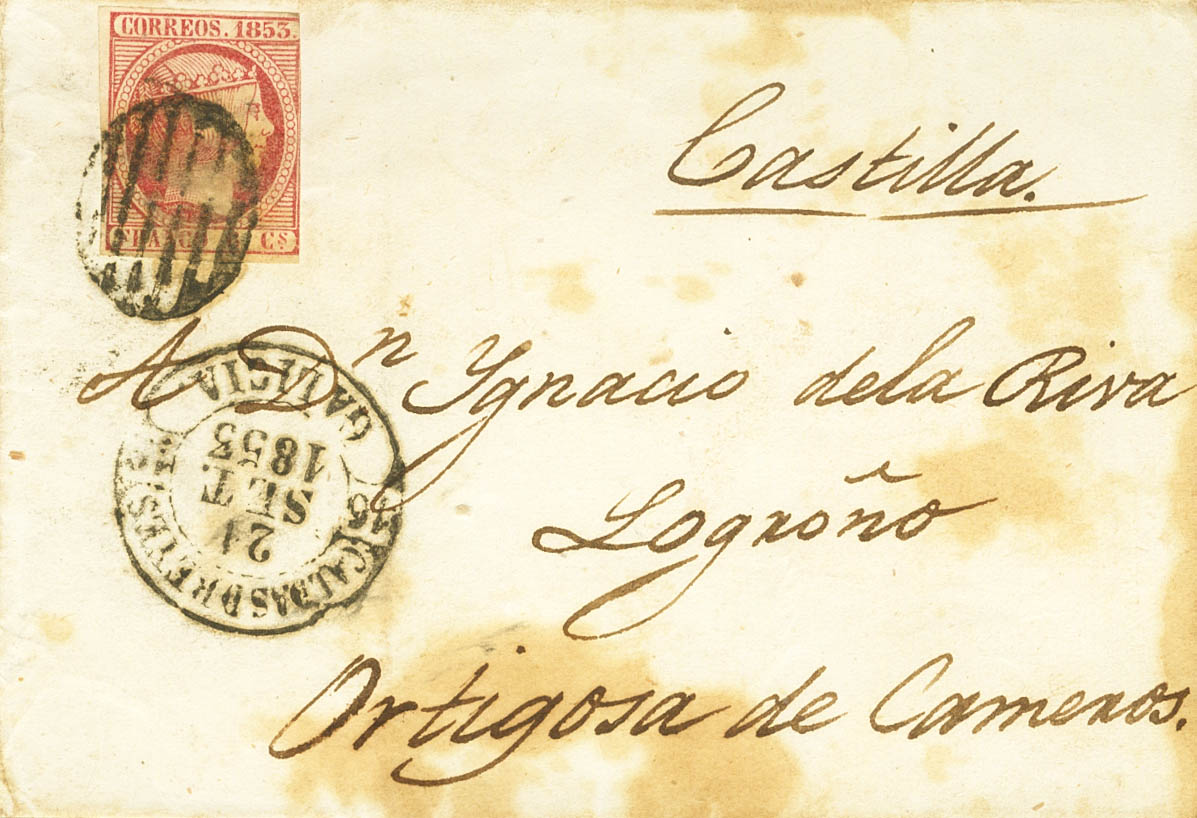 CORREOS. 1853.
FRANCO CS
Castilla.
A Dn Ygnacio dela Riva
Logroño
Ortigosa de Cameros.
CALDAS D REYES
21
SET.
1853
GALICIA